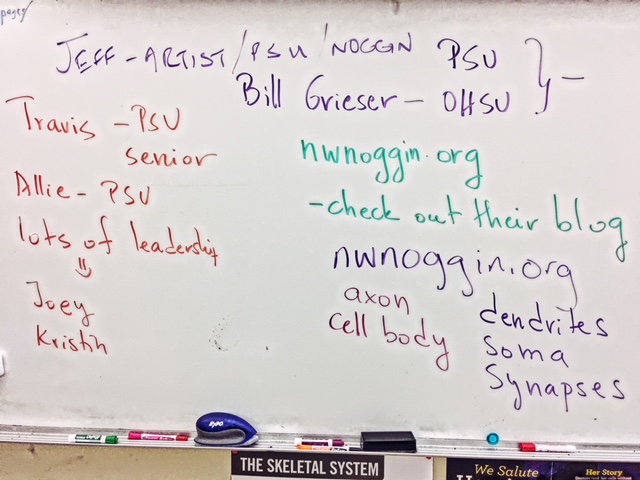 pages/
JEFF - ARTIST / PSU / NOGGIN PSU } -
Bill Grieser - OHSU
Travis - PSU
senior
Allie - PSU
lots of leadership
⇓
Joey
Kristin
nwnoggin.org
- check out their blog
nwnoggin.org
axon
cell body
dendrites
soma
Synapses
EXPO
THE SKELETAL SYSTEM
We Salute
Her Story